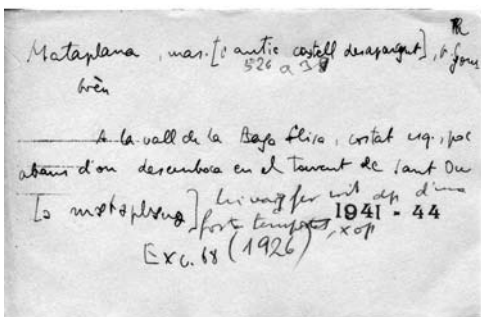 Mataplana, mas. [i antic castell desaparegut],
526 a 38
brèn
A la vall de la Baga Elisa, costat esq., poc
abans d'on desemboca en el Torrent de Sant Ou
[ə mətəplánə] hi vaig fer nit dp d'una
fort tempesta, xop 1941 - 44
Exc. 68 (1926)